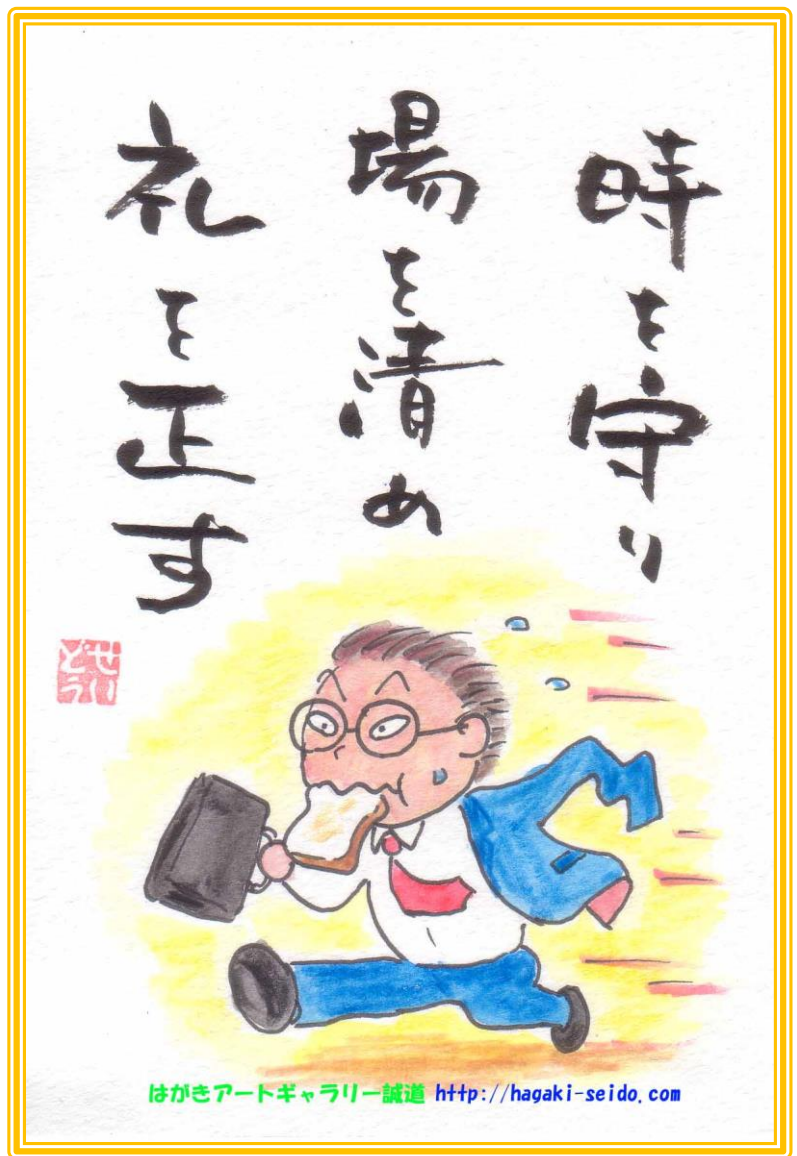 時を守り
場を清め
礼を正す
せい
どう
はがきアートギャラリー誠道 http://hagaki-seido.com